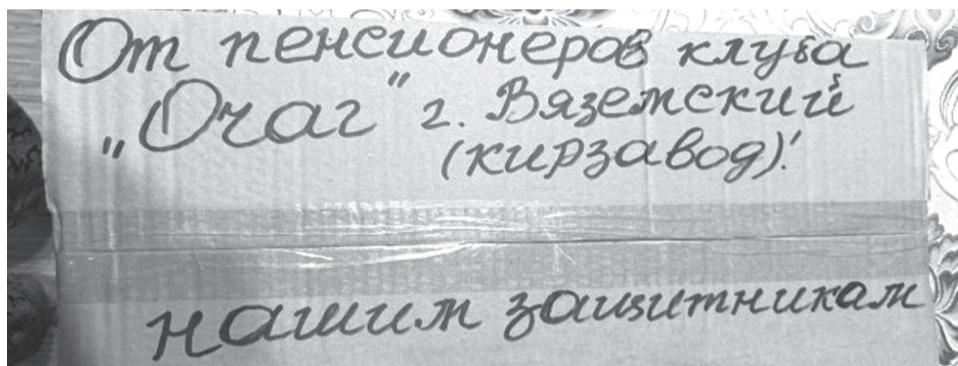 От пенсионеров клуба
„Очаг" г. Вяземский
(кирзавод)!
нашим защитникам